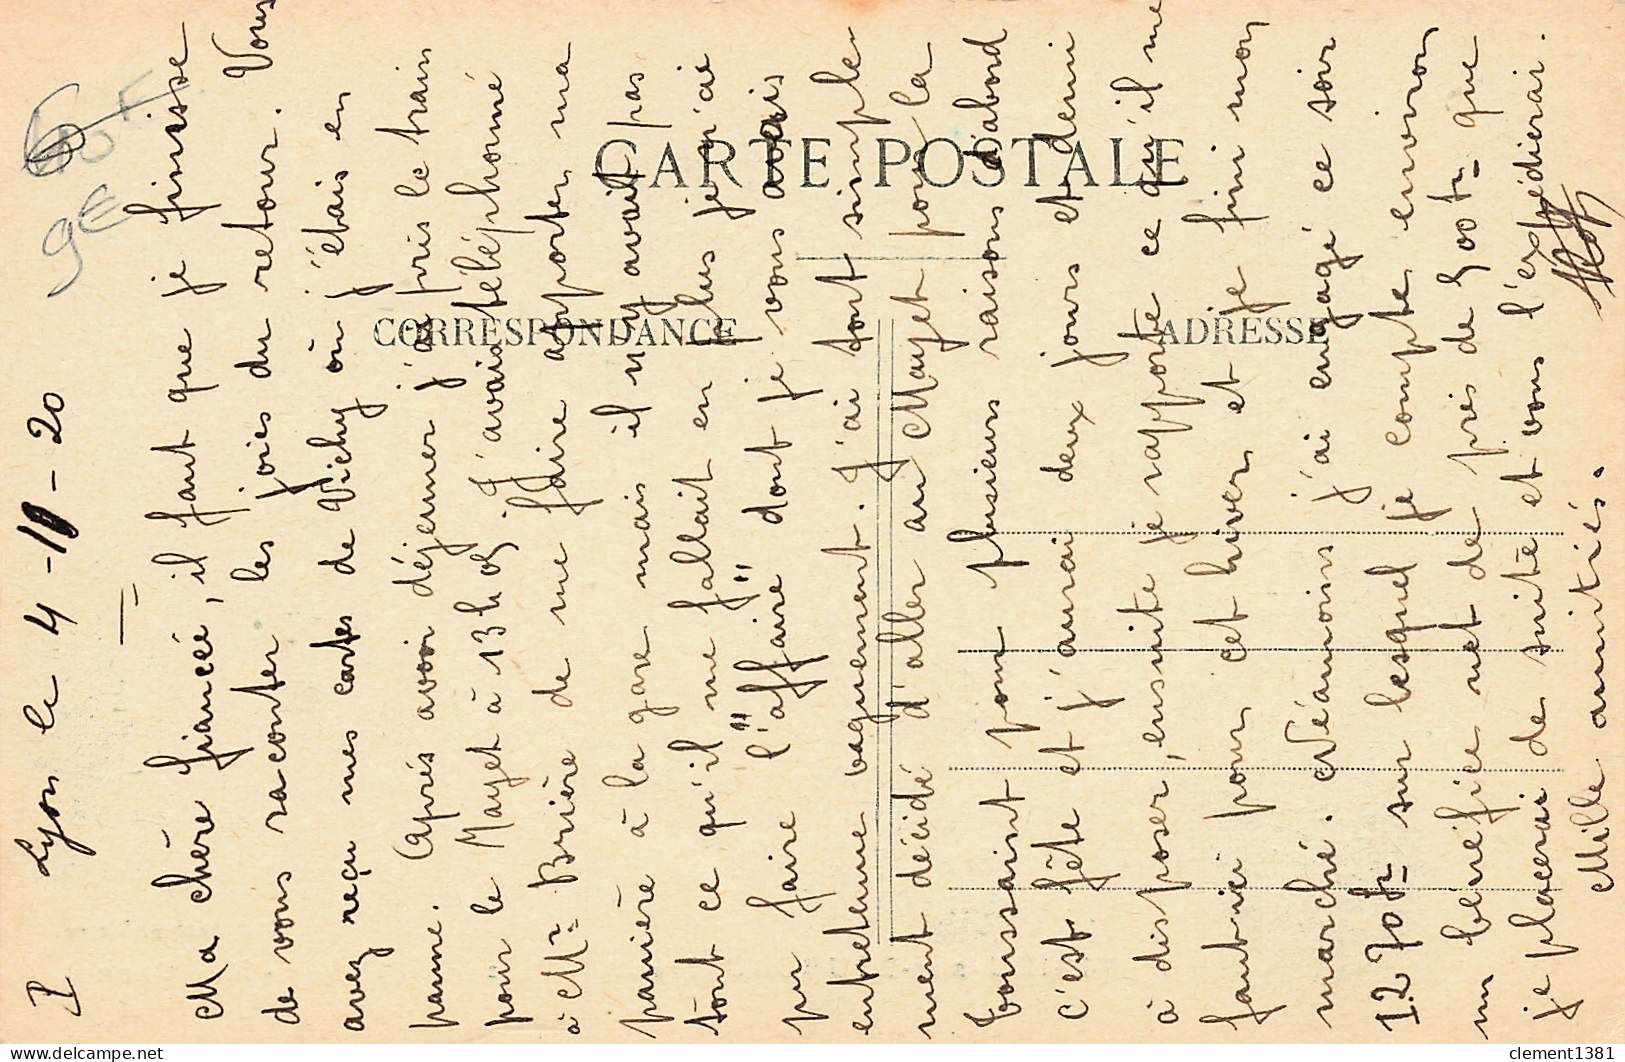 I
Lyon le 4-10-20
Ma chère fiancée, il faut que je finisse
de vous raconter les joies du retour. Vous
avez reçu mes cartes de Vichy où j'étais en
panne. Après avoir déjeuner j'ai pris le train
pour le Mayet à 13h05. J'avais téléphoné
à Mr Brière de me faire apporter ma
panière à la gare mais il n'y avait pas
tout ce qu'il me fallait en plus je n'ai
pu faire "l'affaire" dont je vous avais
entretenue vaguement. J'ai dont simple-
ment décidé d'aller au Mayet pour la
Toussaint pour plusieurs raisons d'abord
c'est fête et j'aurai deux jours et demi
à disposer, ensuite je rapporte ce qu'il me
faut ici pour cet hiver et je fini mon
marché. Néamoins j'ai engagé ce soir
1270fr sur lesquel je compte environ
un bénéfice net de près de 500fr que
je placerai de suite et vous l'expédierai.
Mille amitiés.
CARTE POSTALE
CORRESPONDANCE
ADRESSE
9E
clement1381